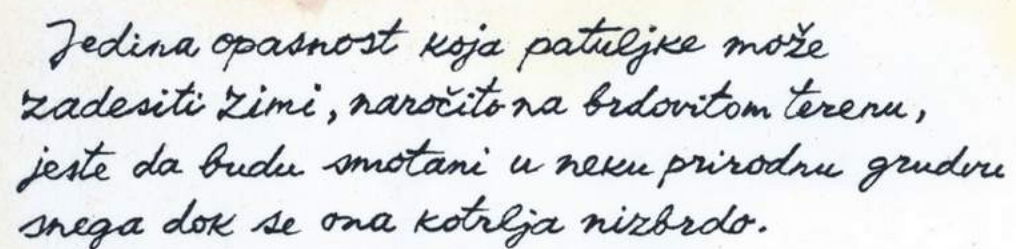 Jedina opasnost koja patuljke može
zadesiti zimi, naročito na brdovitom terenu,
jeste da budu smotani u neku prirodnu grudvu
snega dok se ona kotrlja nizbrdo.